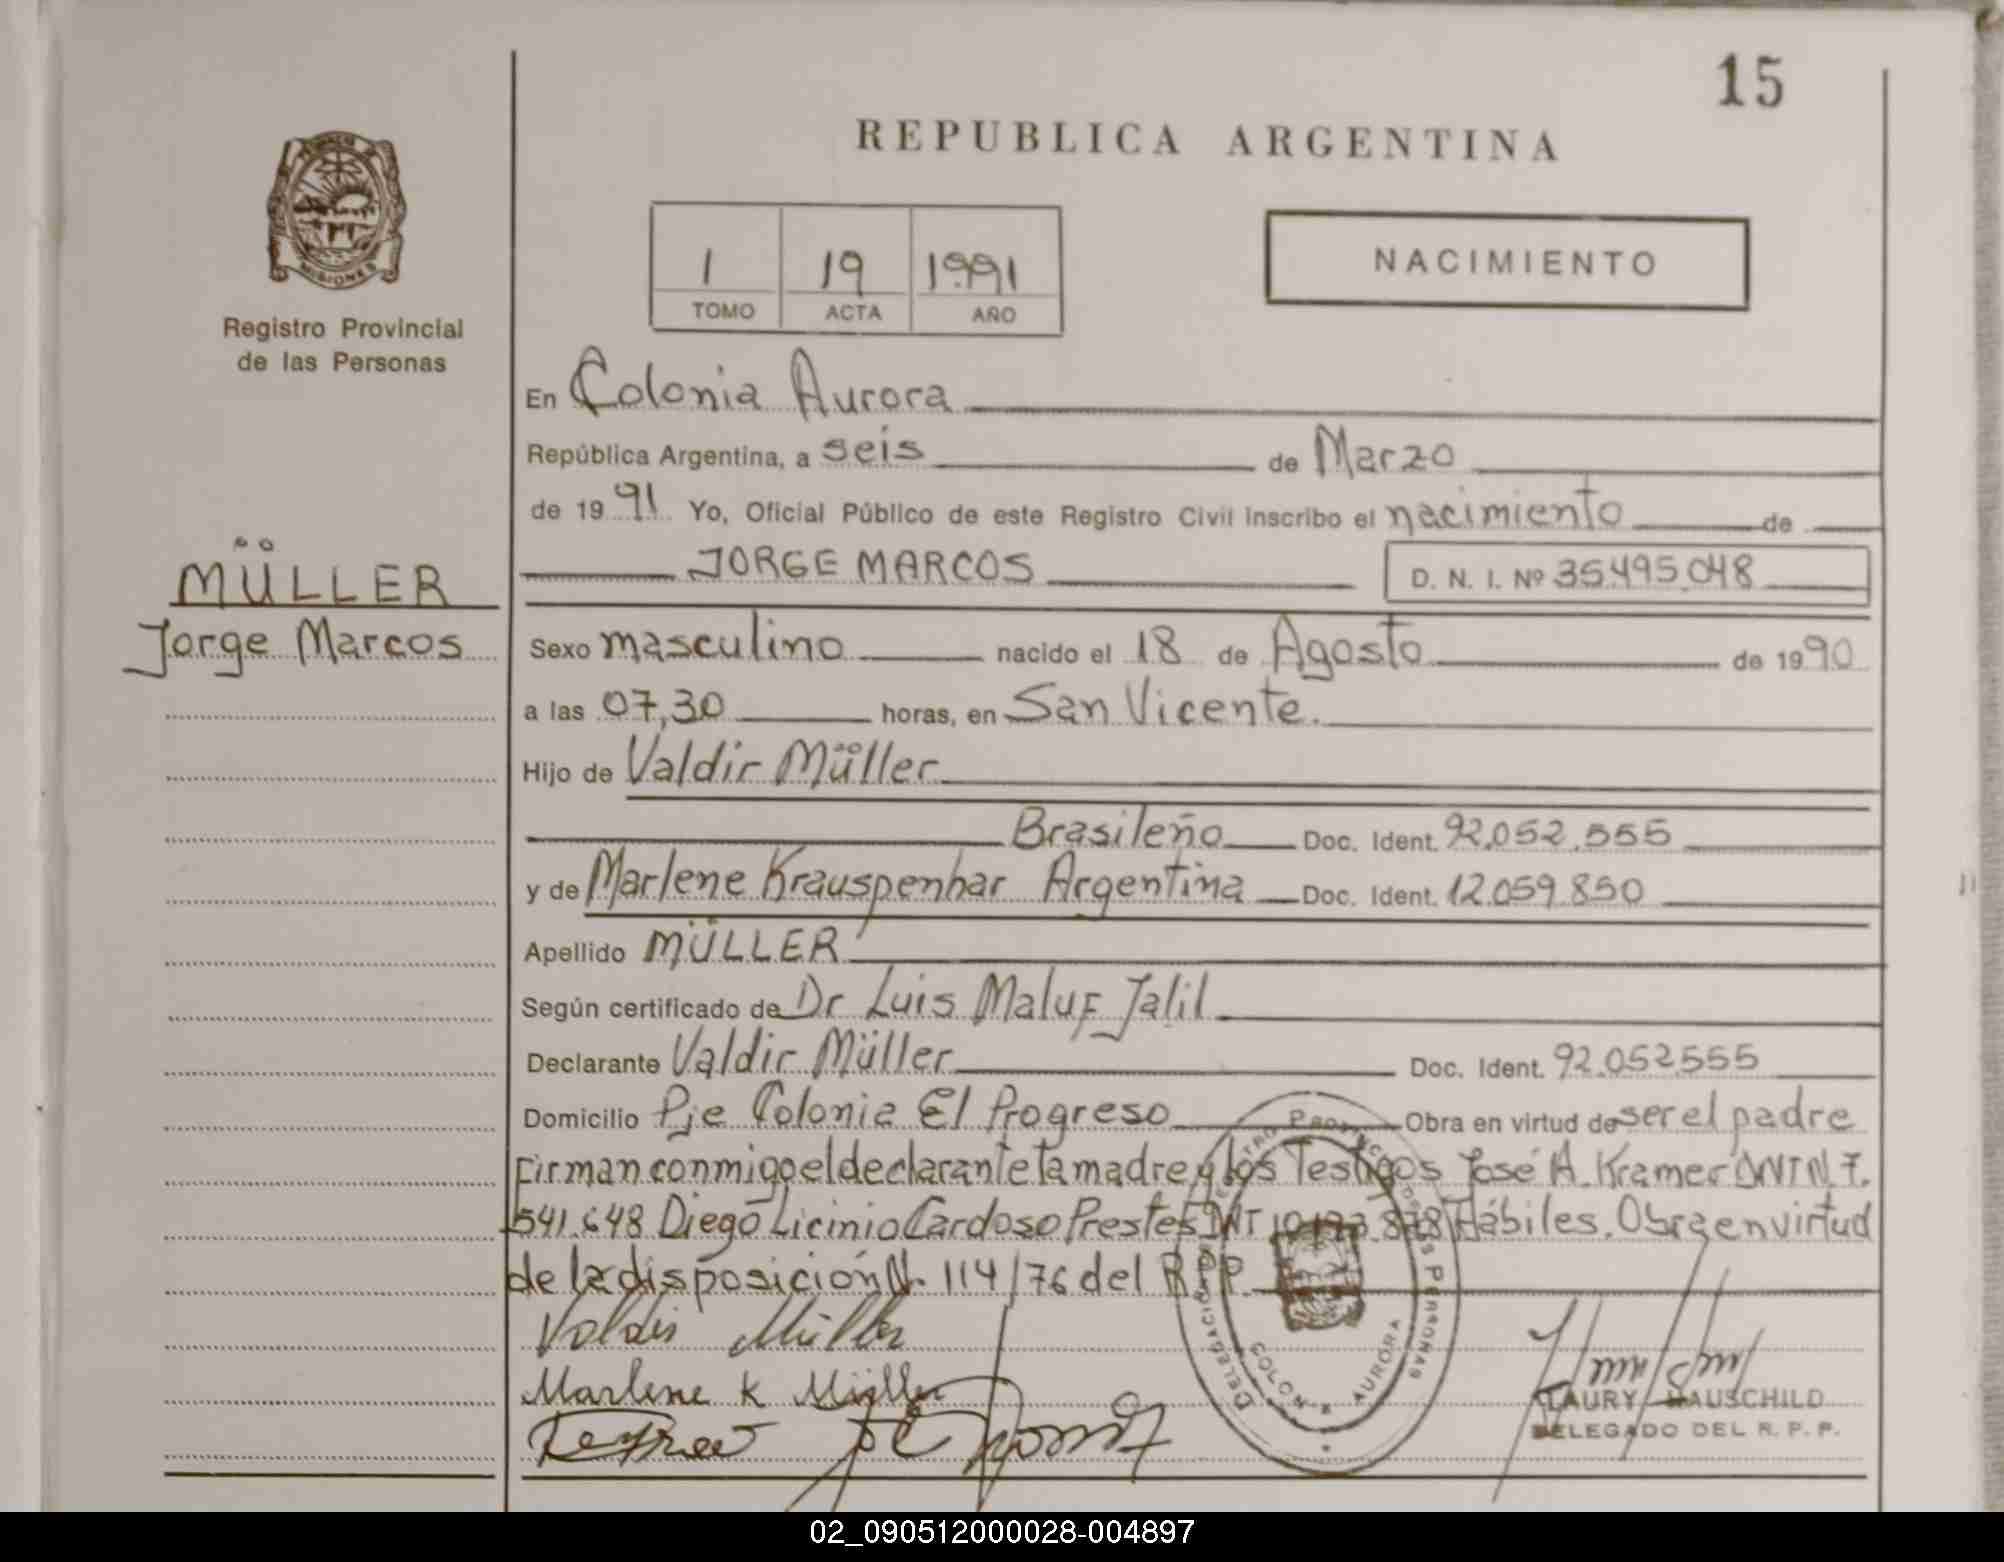 15
REPUBLICA ARGENTINA
MISIONES
Registro Provincial
de las Personas
1 19 1991
TOMO ACTA AÑO
NACIMIENTO
En Colonia Aurora
República Argentina, a seis de Marzo
de 1991 Yo, Oficial Público de este Registro Civil inscribo el nacimiento de
JORGE MARCOS D. N. I. Nº 35.495.048
MÜLLER
Jorge Marcos
Sexo masculino nacido el 18 de Agosto de 1990
a las 07,30 horas, en San Vicente.
Hijo de Valdir Müller
Brasileño Doc. Ident. 92.052.555
y de Marlene Krauspenhar Argentina Doc. Ident. 12.059.850
Apellido MÜLLER
Según certificado de Dr Luis Maluf Jalil
Declarante Valdir Müller Doc. Ident. 92.052555
Domicilio Pje Colonia El Progreso Obra en virtud de ser el padre
Firman conmigo el declarante la madre y los Testigos José A. Kramer DNI N. 7.
541.648 Diego Licinio Cardoso Prestes Hábiles. Obra en virtud
de la disposición N. 114/76 del R.P.P.
Valdir Müller
Marlene K Müller
COLONIA AURORA
LAURY HAUSCHILD
DELEGADO DEL R. P. P.
02_090512000028-004897